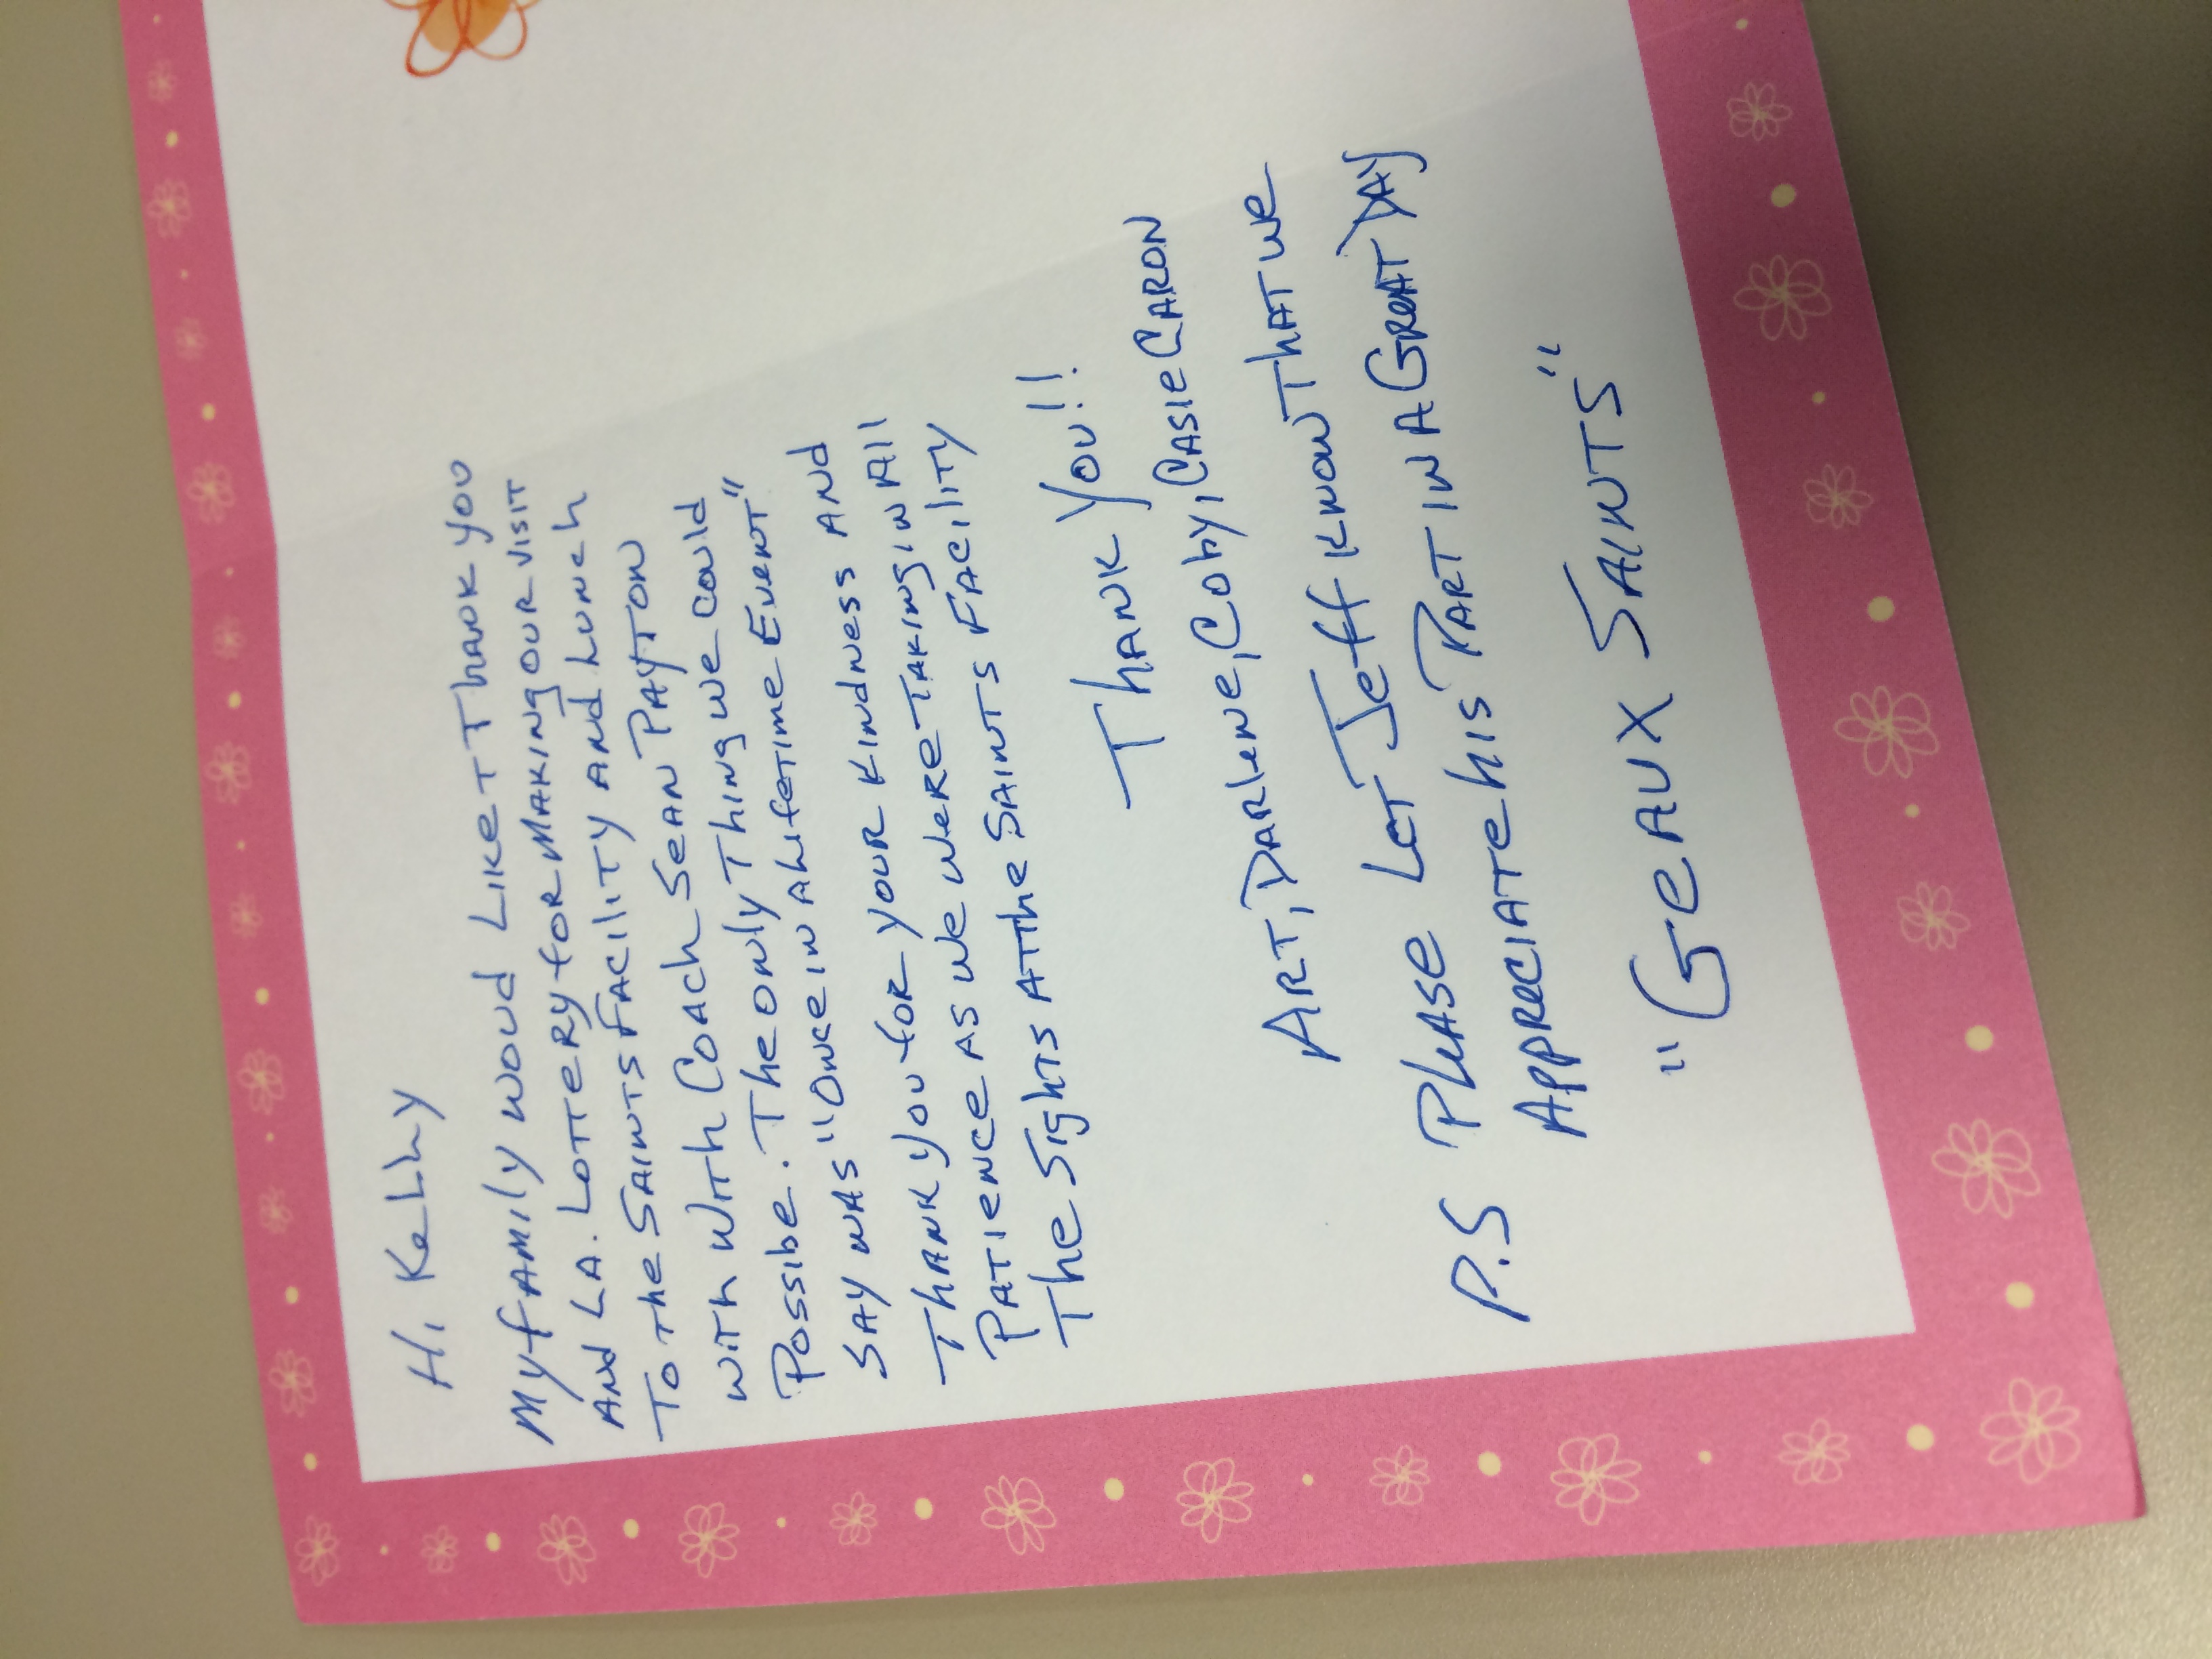 Hi Kelly
My family woud Like T Thank you
And LA. Lottery for Making our visit
To the Saints Facility and Lunch
with with Coach Sean Payton
Possibe. The only Thing we could
say was "Once in a Lifetime Event"
Thank you for your kindness and
Patience as we were Taking in All
The Sights at the Saints Facility
Thank you!!
Art, Darlene, Coby, Casie Caron
P.S Please Let Jeff know That we
Appreciate his Part in a Great Day
"Geaux Saints"